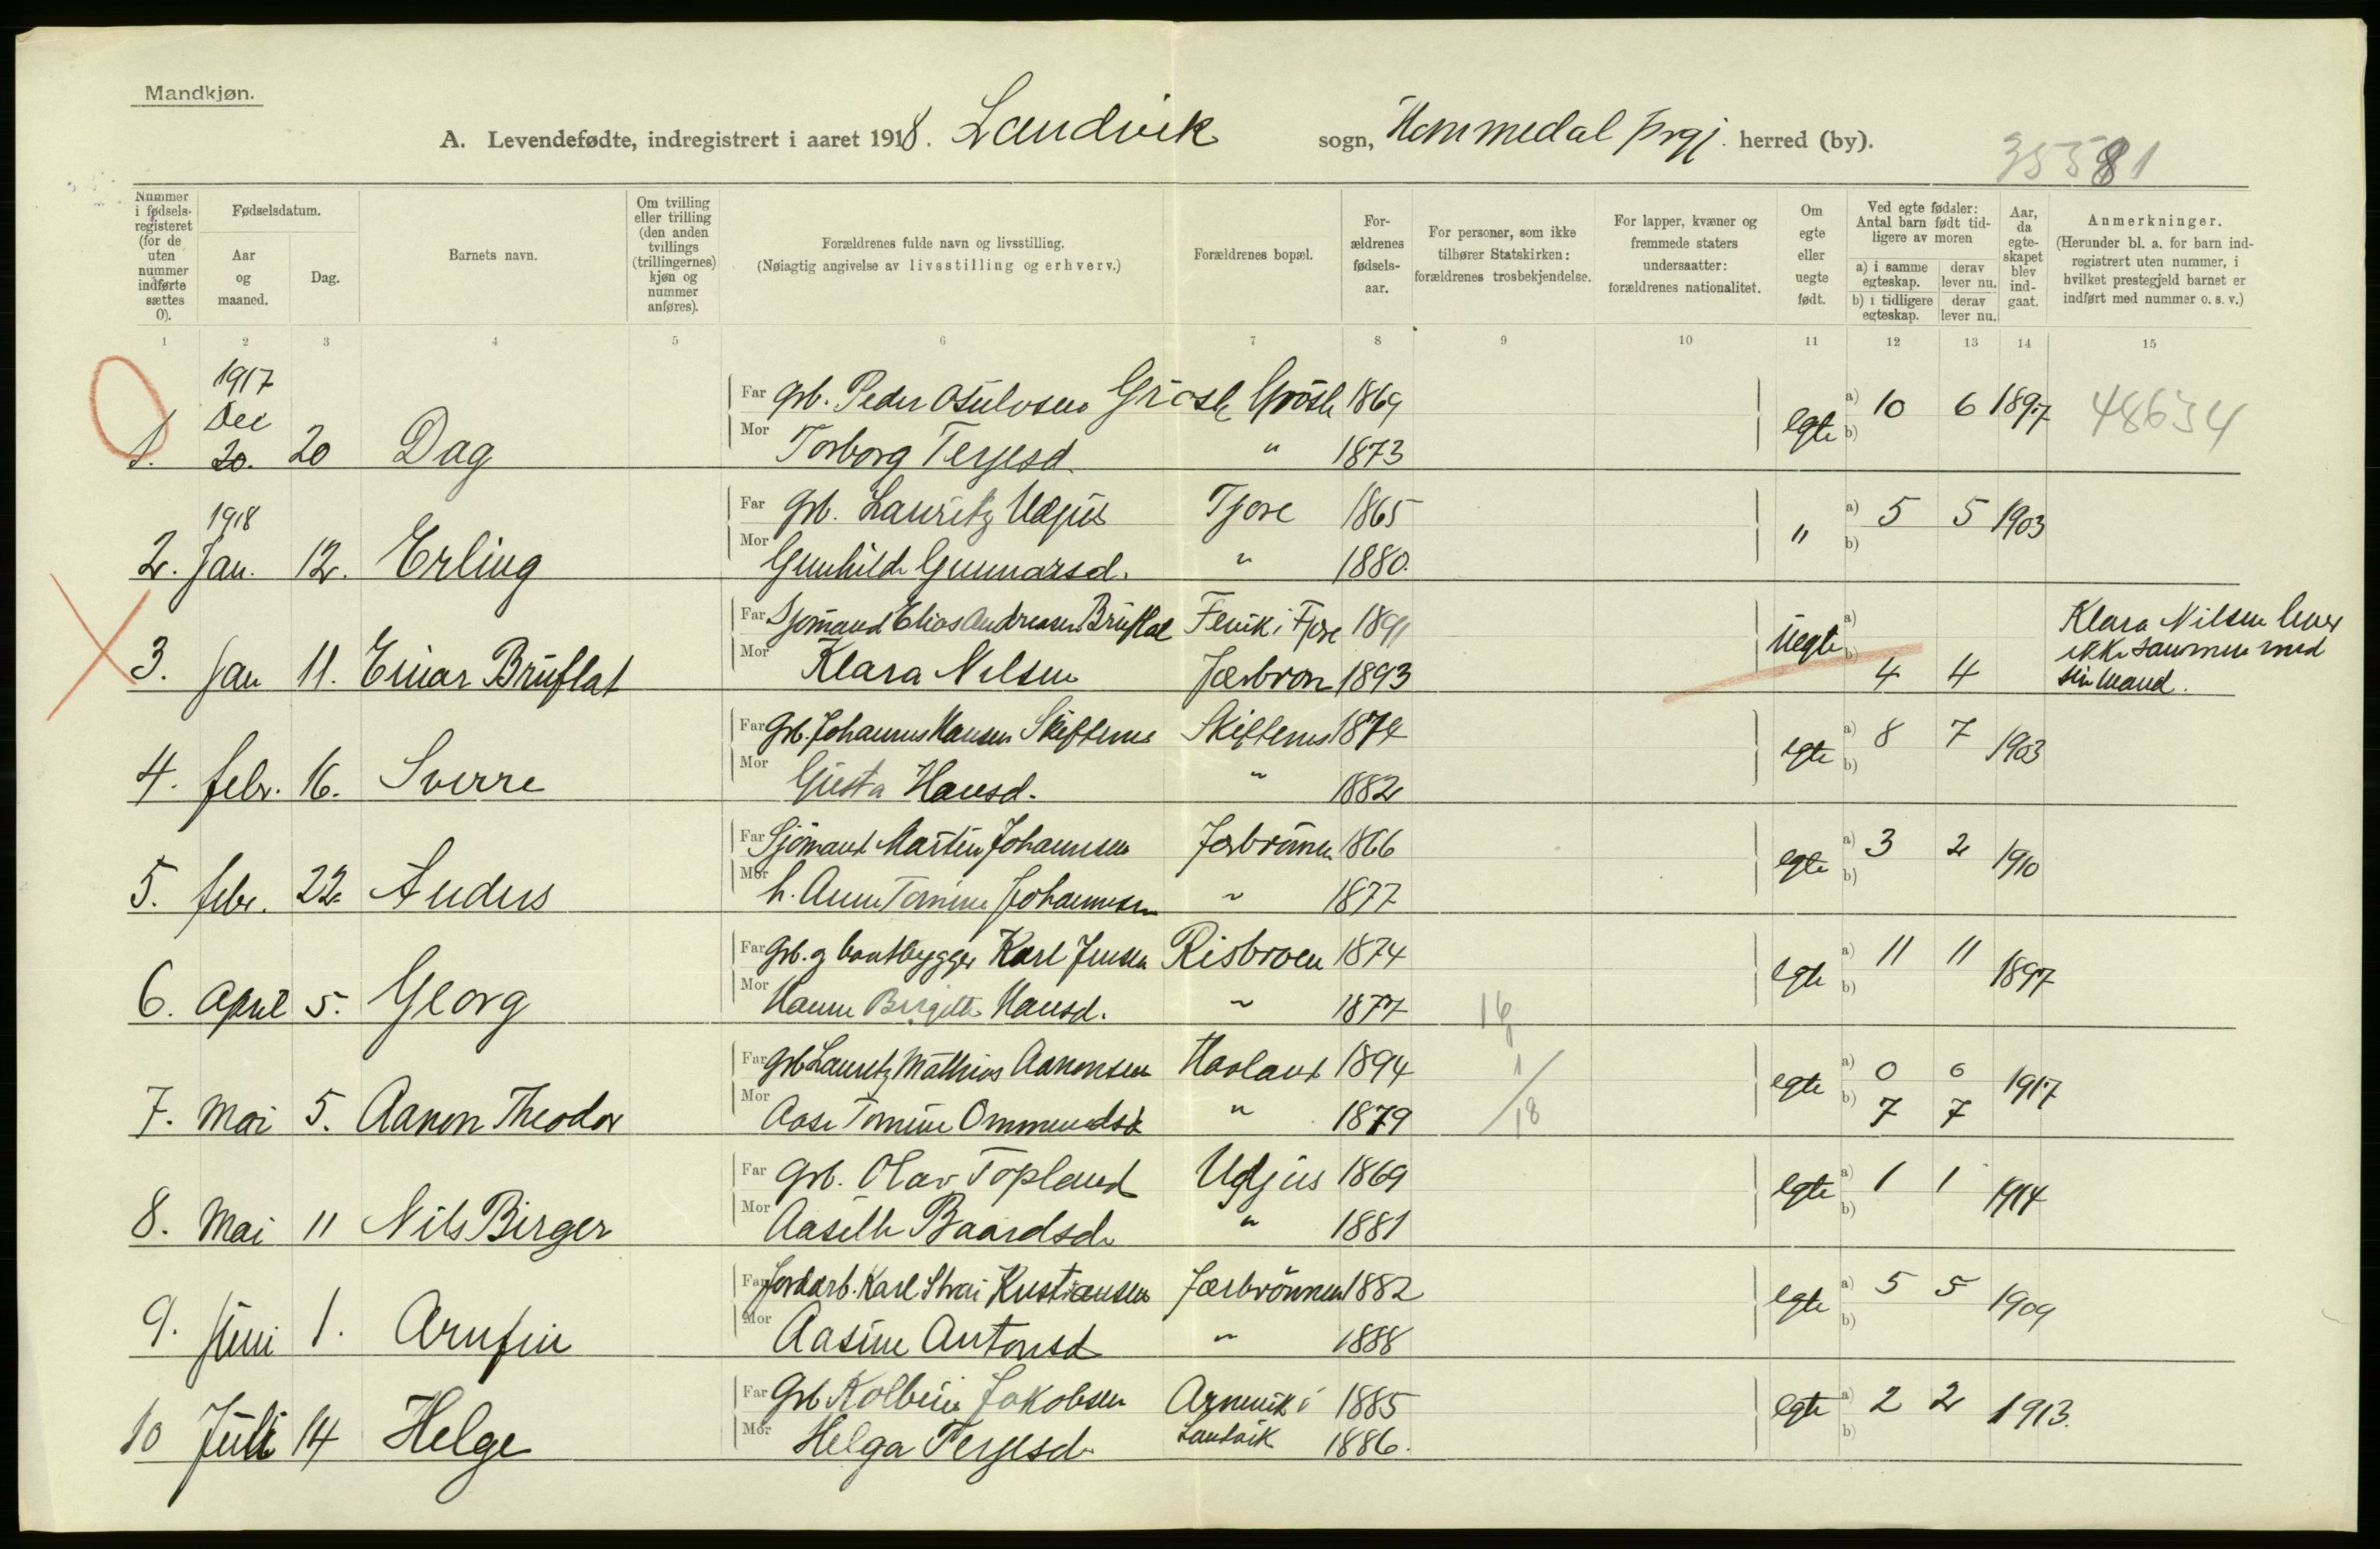 Mandkjøn.
A. Levendefødte, indregistrert i aaret 1918. Landvik sogn, Hommedal prgj. herred (by).
35581
Nummer i fødsels-registeret (for de uten nummer indførte sættes 0).
Fødselsdatum.
Aar og maaned.
Dag.
Barnets navn.
Om tvilling eller trilling (den anden tvillings (trillingernes) kjøn og nummer anføres).
Forældrenes fulde navn og livsstilling.
(Nøiagtig angivelse av livsstilling og erhverv.)
Forældrenes bopæl.
For-ældrenes fødsels-aar.
For personer, som ikke tilhører Statskirken: forældrenes trosbekjendelse.
For lapper, kvæner og fremmede staters undersaatter: forældrenes nationalitet.
Om egte eller uegte født.
Ved egte fødsler: Antal barn født tid-ligere av moren
a) i samme egteskap.
derav lever nu.
b) i tidligere egteskap.
derav lever nu.
Aar, da egte-skapet blev ind-gaat.
Anmerkninger.
(Herunder bl. a. for barn ind-registrert uten nummer, i hvilket prestegjeld barnet er indført med nummer o. s. v.)
1 2 3 4 5 6 7 8 9 10 11 12 13 14 15
1917
Far Grb. Peder Osulvsen 1869 a) 10 6 1897 48634
Dec
1. 20. 20 Dag Mor Torborg Terjesd. " 1873 egte b)
1918
Far Grb. Lauritz Udjus Tjore 1865 a) 5 5 1903
2. Jan. 12. Erling Mor Gunhild Gunnarsd. " 1880. " b)
Far Sjømand Elias Andreasen Bruflat i Fjære 1891 a) Klara Nilsen lever
ikke sammen med
3. Jan 11. Einar Bruflat Mor Klara Nilsen Jærbron 1893 uegte b) 4 4 sin mand.
Far Grb. Johannes Hansen Skiftenes Skiftenes 1874 a) 8 7 1903
4. febr. 16. Sverre Mor Gusta Hansd. " 1882 egte b)
Far Sjömand Martin Johannesen Jærbrönnen 1866 a) 3 2 1910
5. febr. 22. Anders Mor h. Anne Tomine Johannesen " 1877 egte b)
Far Grb. og baatbygger Karl Jensen Risbroen 1874 a) 11 11 1897
6. April 5. Georg Mor Hanne Birgitte Hansd. " 1877 egte b)
Far Grb Lauritz Mathias Aanonsen Haaland 1894 1 a) 0 0 1917
7. Mai 5. Aanon Theodor Mor Aase Tomine Ommundsd. " 1879 18 egte b) 7 7
Far Grb. Olav Topland Udjus 1869 a) 1 1 1914
8. Mai 11 Nils Birger Mor Aaselle Baardsd. " 1881 egte b)
Far Jordarb. Karl Kristiansen Jærbrönnen 1882 a) 5 5 1909
9. Juni 1. Arnfin Mor Aasine Antonsd " 1888 egte b)
Far Grb Kolbein Jakobsen Arnevik i 1885 a) 2 2 1913.
10 Juli 14 Helge Mor Helga Terjesd. Landvik 1886. egte b)